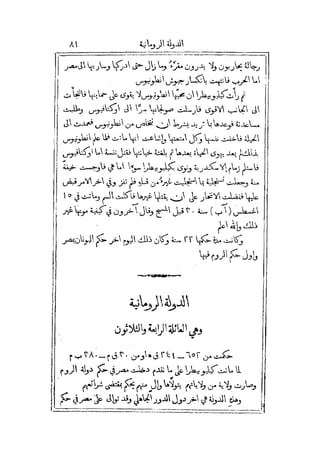 الدولة الرومانية ٨١
رجالهُ يحاربون ولا يدرون مقرَّهُ وما زال حتى ادركها وسار بها الى مصر
اما الحرب فانتهت بانكسار جيوش انطونيوس
ثم رأت كليوبطرا ان محبها انطونيوس لا يقوى على حمايتها فالتجأت
الى الجانب الاقوى فارسلت صولجانها سرًّا الى اوكتافيوس وطلبت
مساعدته فوعدها بما تريد بشرط ان تتخلص من انطونيوس فعمدت الى
الحيلة فاخفت نفسها وكل امتعتها واشاعت انها ماتت فلما علم انطونيوس
بذلك لم يعد يهوى الحياة بعدها ثم بلغهُ خيانتها فقتل نفسهُ اما اوكتافيوس
فاستلم زمام الاسكندرية ونوى بكليوبطرا سوءًا اما هي فاوجست خيفة
منهُ وجعلت تستجلبهُ بما استجلبت غيرهُ من قبلهِ فلم تفز وفي اخر الامر قبض
عليها ففضلت الانتحار على ان يقتلها غيرها فاكلت السم وماتت في ١٥
اغسطس (آب) سنة ٣٠ قبل المسيح وقال آخرون في كيفية موتها غير
ذلك والله اعلم
وكانت مدة حكمها ٢٢ سنة وكان ذلك اليوم اخر حكم اليونان بمصر
واول حكم الروم فيها
الدولة الرومانية
وهي العائلة الرابعة والثلاثون
حكمت من ٦٥٢ – ٢٤١ ق ه او من ٣٠ ق م – ٣٨٠ ب م
لما ماتت كليوبطرا على ما تقدم دخلت مصر في حكم دولة الروم
وصارت ولاية من ولاياتهم يتولاها والٍ منهم يحكم بمقتضى شرائعهم
وهذه الدولة هي اخر دول الدور الجاهلي وقد توالى على مصر في حكم